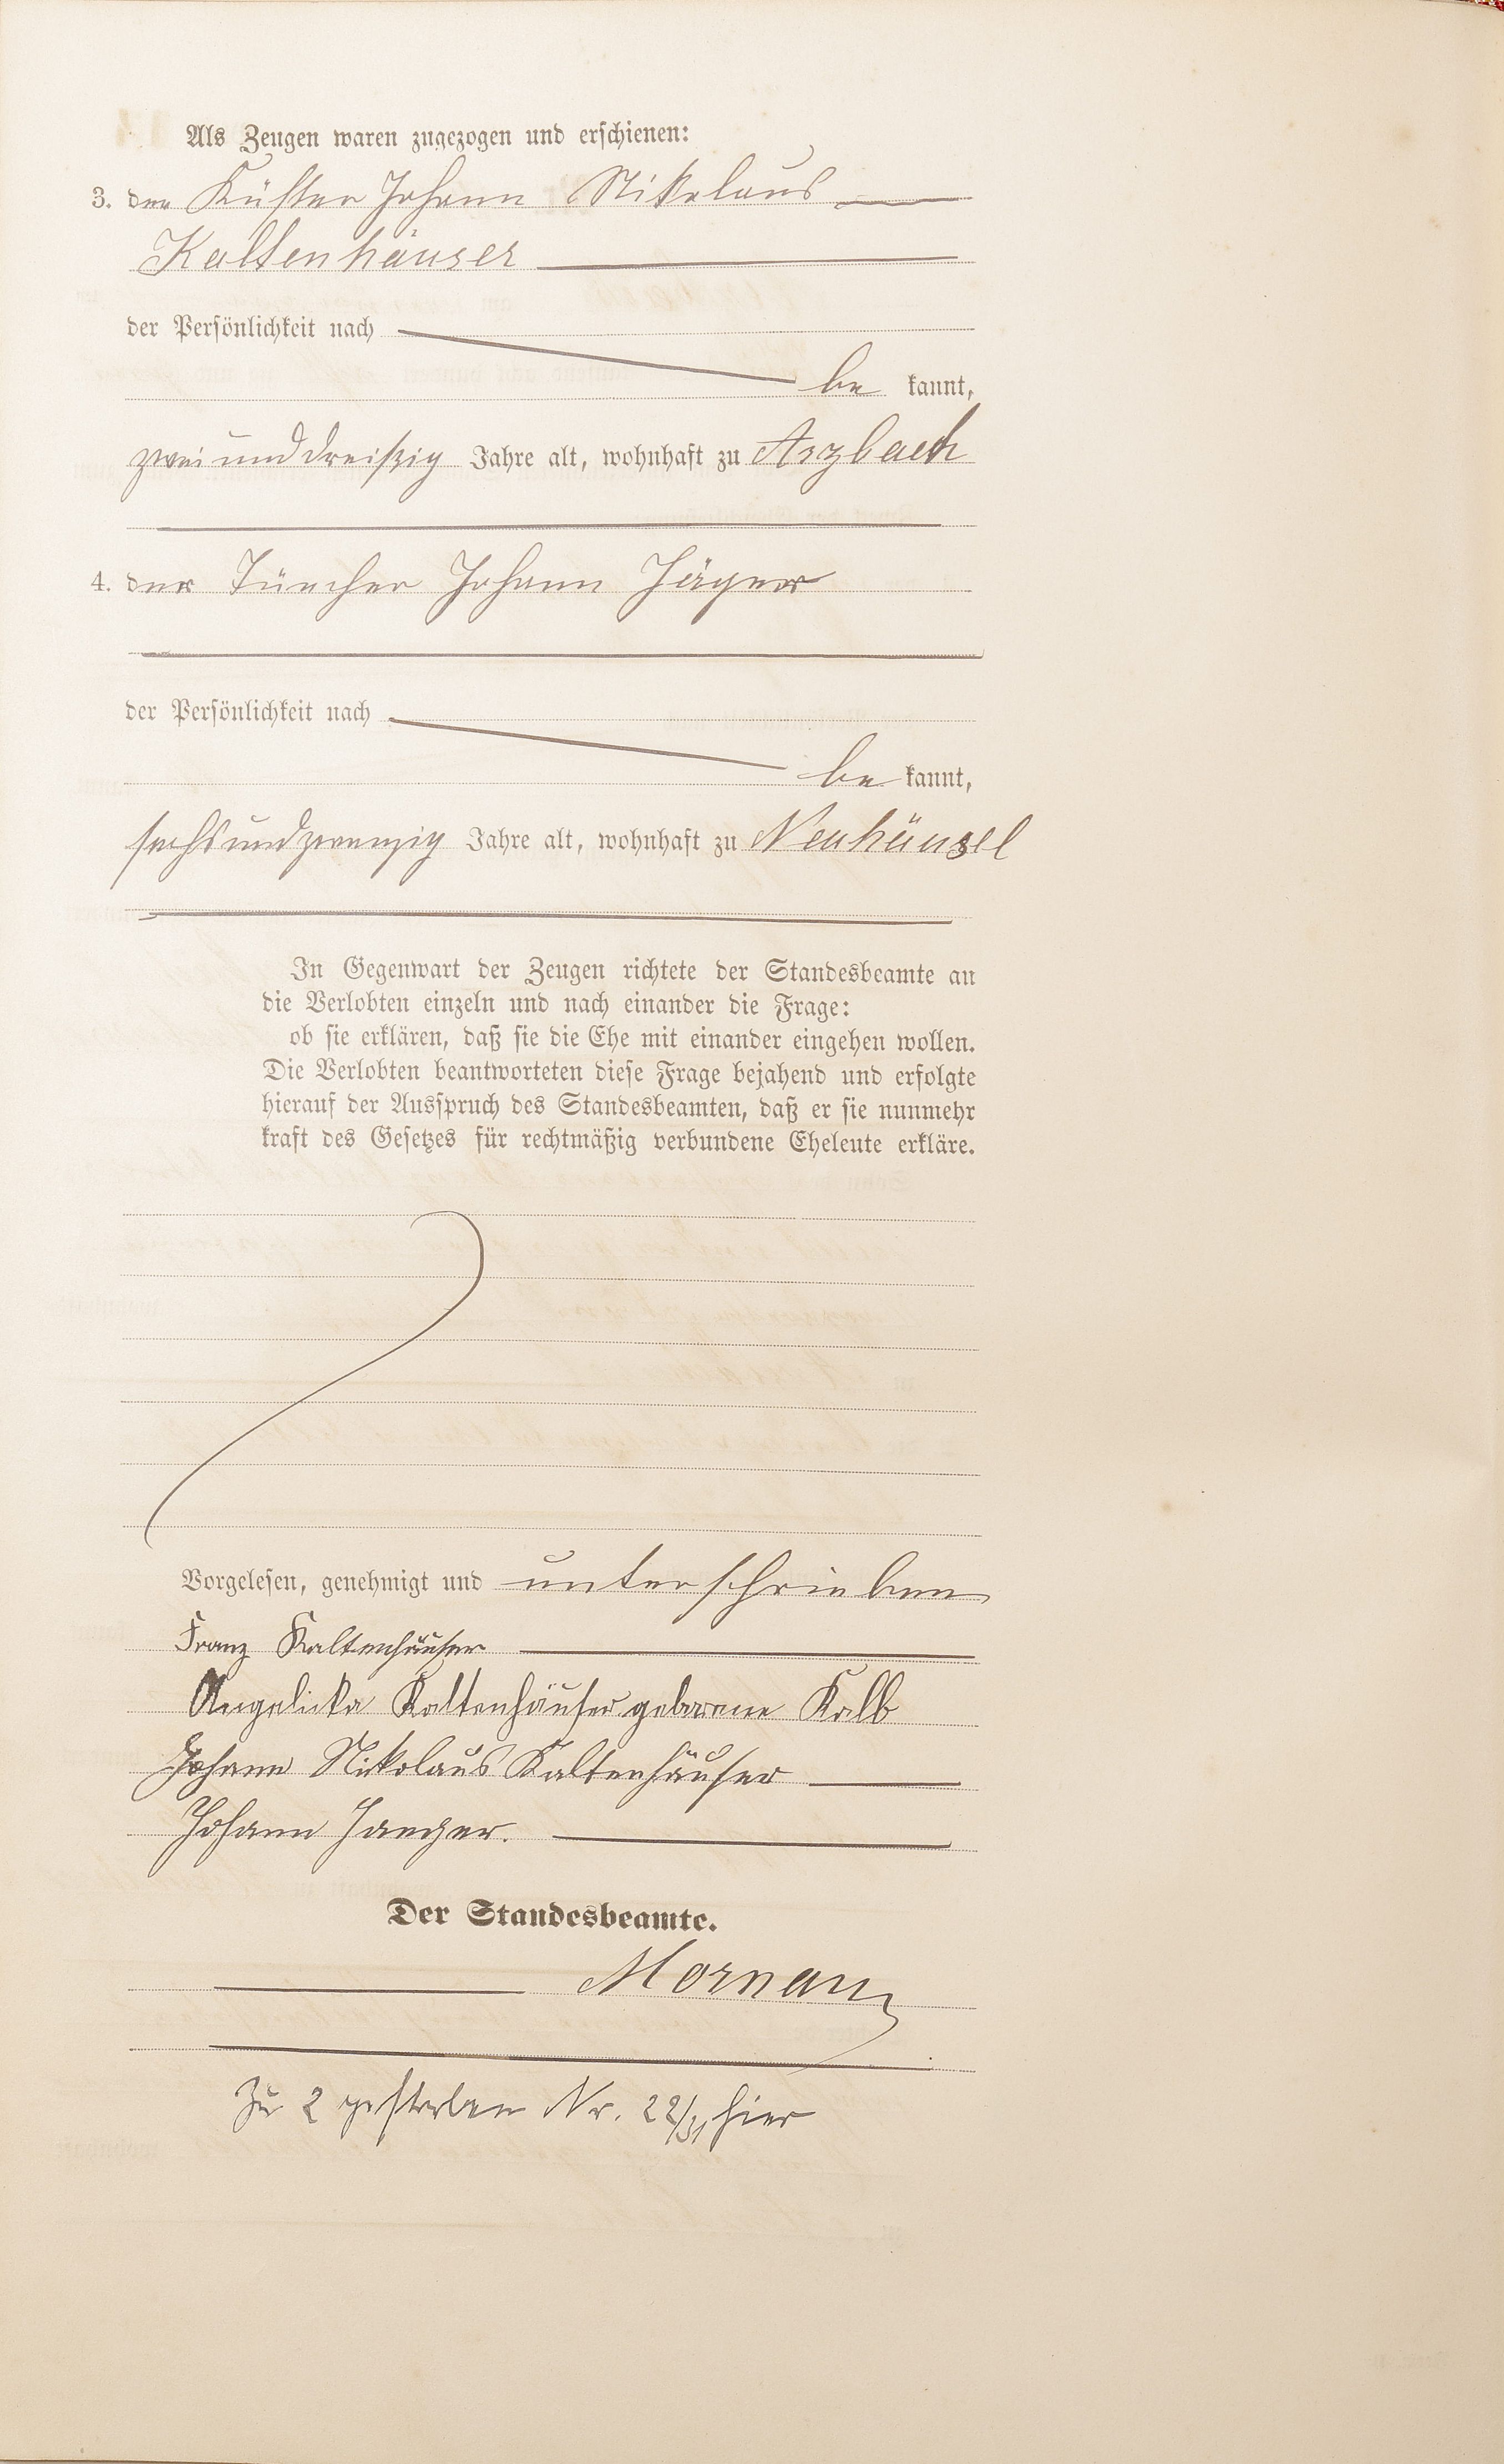 Als Zeugen waren zugezogen und erschienen:
3. der Küster Johann Nikolaus
Kaltenhäuser
der Persönlichkeit nach
be kannt,
zweiunddreißig Jahre alt, wohnhaft zu Arzbach
4. der Tüncher Johann Jäger
der Persönlichkeit nach
be kannt,
sechsundzwanzig Jahre alt, wohnhaft zu Neuhäusel
In Gegenwart der Zeugen richtete der Standesbeamte an
die Verlobten einzeln und nach einander die Frage:
ob sie erklären, daß sie die Ehe mit einander eingehen wollen.
Die Verlobten beantworteten diese Frage bejahend und erfolgte
hierauf der Ausspruch des Standesbeamten, daß er sie nunmehr
kraft des Gesetzes für rechtmäßig verbundene Eheleute erkläre.
Vorgelesen, genehmigt und unterschrieben
Franz Kaltenhäuser
Angelika Kaltenhäuser geborene Kalb
Johann Nikolaus Kaltenhäuser
Johann Jaeger.
Der Standesbeamte.
Zu 2 gestorben Nr. 22/31 hier